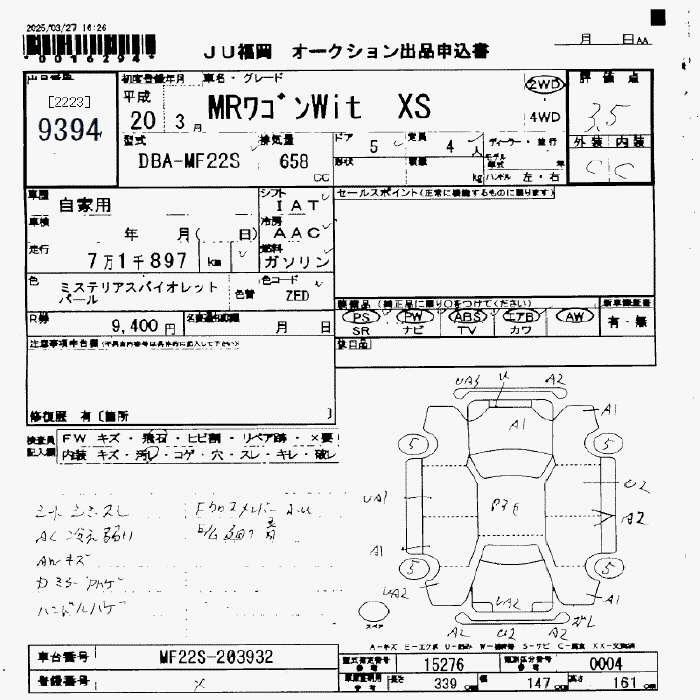 2025/03/27 16:26
*00162941*
JU福岡 オークション出品申込書
月 日 AA
出品番号
[2223]
9394
初度登録年月
平成
20 3月
車名・グレード
MRワゴンWit XS
2WD
4WD
評価点
3.5
型式
DBA-MF22S
排気量
658 CC
ドア
5
定員
4 人
形状
積載 kg
ディーラー・並行
モデル年式 年
ハンドル 左・右
外装 内装
C C
車歴
自家用
シフト
IAT
セールスポイント(正常に機能するものに限ります)
車検
年 月( 日)
冷房
AAC
走行
7万1千897 km
燃料
ガソリン
色
ミステリアスバイオレット
パール
色替
色コード
ZED
装備品(純正品に限り○をつけてください)
新車保証書
PS PW ABS エアB AW
SR ナビ TV カワ
有・無
R券
9,400 円
名義変更期限
月 日
注意事項申告欄
後日品
修復歴 有〔箇所 〕
検査員
記入欄
FW キズ・飛石・ヒビ割・リペア跡・×要
内装 キズ・汚レ・コゲ・穴・スレ・キレ・破レ
UA3 U A2
A1
A1
5 5
UA1
P36
U2
A2
A1
5 5
UA2
UA2
A1
スペア
A2 U2 A2
シートシミスレ
AC冷え弱り
AWキズ
ハンドルハゲ
A-キズ E-エクボ U-凹み W-補修跡 S-サビ C-腐食 XX-交換済
車台番号
MF22S-203932
型式指定番号
15276
類別区分番号
0004
登録番号
長さ
339 cm
幅
147 cm
高さ
161 cm